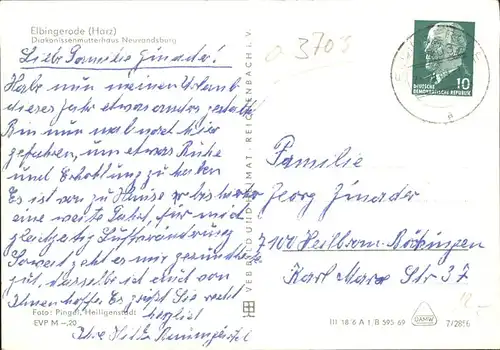 Elbingerode (Harz)
Diakonissenmutterhaus Neuvandsburg
Liebe Familie Zinader!
Habe nun meinen Urlaub
dieses Jahr etwas anders gestaltet
Bin nun mal nach hier
gefahren, um etwas Ruhe
und Erholung zu haben
Es ist von zu Hause
eine weite Fahrt, für mich
gleichzeitig Luftveränderung
Soweit geht es mir gesundheitl.
gut, dasselbe ich auch von
Ihnen hoffe. Es grüßt Sie recht
herzlich
Ihre
Foto: Pingel, Heiligenstadt
EVP M –,20
VEB BILD UND HEIMAT, REICHENBACH i. V.
a 3705
10
DEUTSCHE
DEMOKRATISCHE REPUBLIK
Familie
Georg Zinader
7100 Heilbronn-Böckingen
Karl Marx Str 37
III 18/6 A 1/B 595/69
DAMW
7/2856